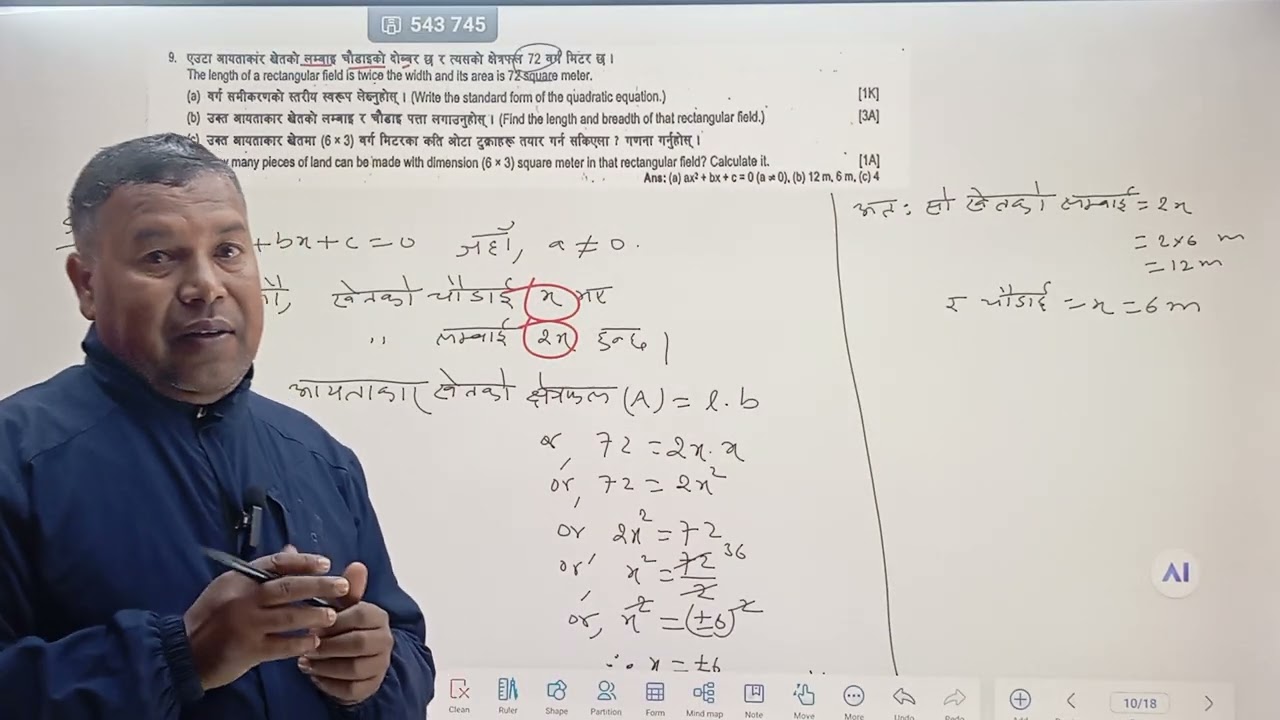 543 745
9. एउटा आयताकार खेतको लम्बाइ चौडाइको दोब्बर छ र त्यसको क्षेत्रफल 72 वर्ग मिटर छ ।
The length of a rectangular field is twice the width and its area is 72 square meter.
(a) वर्ग समीकरणको स्तरीय स्वरूप लेख्नुहोस् । (Write the standard form of the quadratic equation.) [1K]
(b) उक्त आयताकार खेतको लम्बाइ र चौडाइ पत्ता लगाउनुहोस् । (Find the length and breadth of that rectangular field.) [3A]
उक्त आयताकार खेतमा (6 × 3) वर्ग मिटरका कति ओटा टुक्राहरू तयार गर्न सकिएला ? गणना गर्नुहोस् ।
many pieces of land can be made with dimension (6 × 3) square meter in that rectangular field? Calculate it. [1A]
Ans: (a) ax² + bx + c = 0 (a ≠ 0), (b) 12 m, 6 m, (c) 4
+bx+c=0 जहाँ, a ≠ 0.
खेतको चौडाई x भए
,, लम्बाई 2x हुन्छ |
आयताकार खेतको क्षेत्रफल (A) = l.b
or, 72 = 2x.x
or, 72 = 2x²
or 2x² = 72
or, x² = 72/2 36
or, x² = (±6)²
∴ x = ±6
अतः सो खेतको लम्बाई = 2x
= 2×6 m
= 12 m
र चौडाई = x = 6 m
AI
Clean Ruler Shape Partition Form Mind map Note Move More Undo Redo Add 10/18